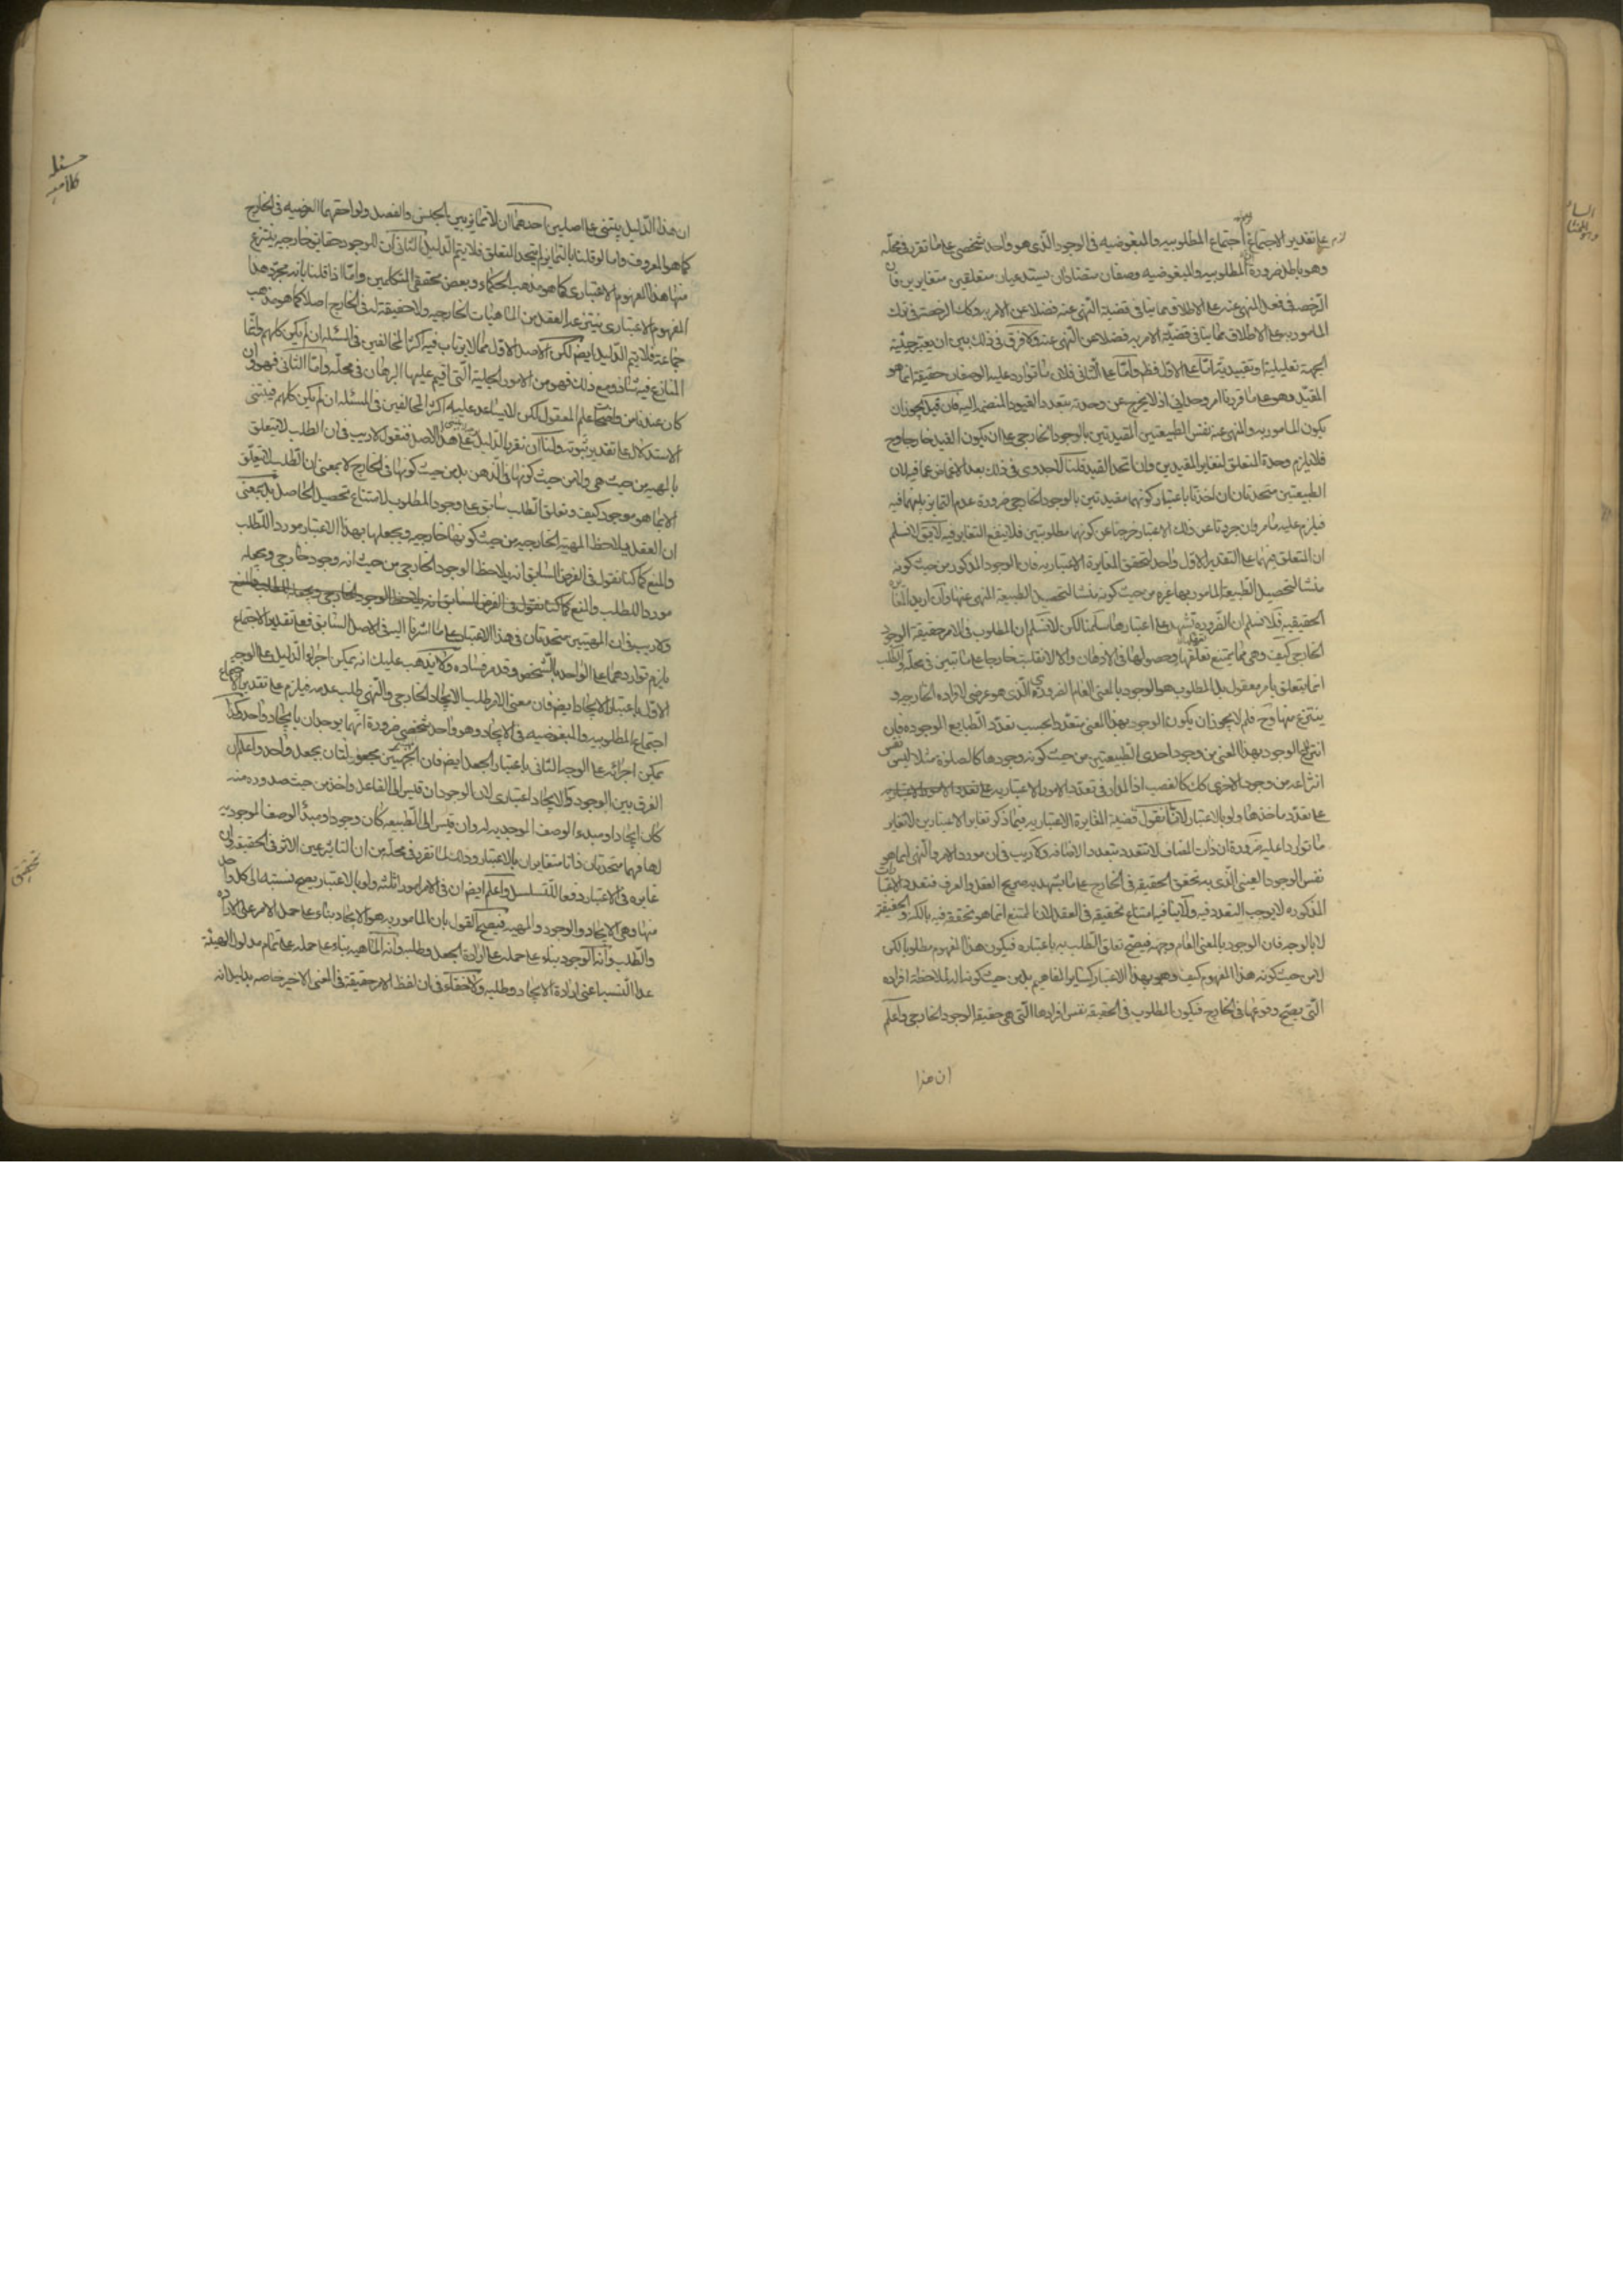 على تقدير الاجتماع اجتماع المطلوبيه والمبغوضيه فى الوجود الذى هو واحد شخصى على ما تقرر فى محله
وهو باطل ضرورة ان المطلوبيه والمبغوضيه وصفان متضادان يستدعيان متعلقين متغايرين فان
الرخصه فى فعل المنهى عنه على الاطلاق مما ينافى قضية النهى عنه فضلا عن الامر به وكك الرخصة فى ترك
المامور به على الاطلاق مما ينافى قضية الامر به فضلا عن النهى عنه ولا فرق فى ذلك بين ان يعتبر حيثية
الجهة تعليلية او تقييدية اما على الاول فظ واما على الثانى فلان ما توارد عليه الوصفان حقيقة انما هو
المقيد وهو على ما قررنا امر وحدانى اذ لا يخرج عن وحدته بتعدد القيود المنضمه اليه فان قيل يجوز ان
يكون المامور به والمنهى عنه نفس الطبيعتين المقيدتين بالوجود الخارجى على ان يكون القيد خارجا وح
فلا يلزم وحدة المتعلق لتغاير المقيدين وان اتحد القيد قلنا لا جدوى فى ذلك بعد الاغماض عما فيه لان
الطبيعتين متحدتان ان اخذتا باعتبار كونهما مقيدتين بالوجود الخارجى ضرورة عدم التمايز بينهما فيه
فيلزم عليه ما مر وان جردتا عن ذلك الاعتبار خرجتا عن كونهما مطلوبتين فلا ينفع التغاير فيه لا يق لا نسلم
ان المتعلق منهما على التقدير الاول واحد لتحقق المغايرة الاعتباريه فان الوجود المذكور من حيث كونه
منشا لتحصيل الطبيعة المامور بها غيره من حيث كونه منشا لتحصيل الطبيعة المنهى عنها وان اريد المغايرة
الحقيقيه فلا نسلم ان الضرورة تشهد على اعتبارها سلمنا لكن لا نسلم ان المطلوب فى الامر حقيقة الوجود
الخارجى كيف وهى مما يمتنع تعلقها وحصولها فى الاذهان والا لانقلبت خارجا على ما تبين فى محله والطلب
انما يتعلق بامر معقول بل المطلوب هو الوجود بالمعنى العام الضرورى الذى هو عرضى لافراده الخارجيه و
ينتزع منها وح فلم لا يجوز ان يكون الوجود بهذا المعنى متعددا بحسب تعدد الطبايع الموجوده فان
انتزاع الوجود بهذا المعنى من وجود احدى الطبيعتين من حيث كونه وجودها كالصلوة مثلا ليس نفس
انتزاعه من وجود الاخرى كك كالغصب اذ المدار فى تعدد الامور الاعتباريه
على تعدد ماخذها ولو بالاعتبار لانا نقول قضية المغايرة الاعتباريه فيما ذكر تغاير الاعتبارين لا تغاير
ما توارد عليه ضرورة ان ذات المضاف لا تتعدد بتعدد الاضافه ولا ريب فى ان مورد الامر والنهى انما هو
نفس الوجود العينى الذى به تحقق الحقيقة فى الخارج على ما يشهد به صريح العقل والعرف فتعدد الاعتبارات
المذكوره لا يوجب التعدد فيه ولا ينافيه امتناع تحققه فى العقل لان الممتنع انما هو تحققه فيه بالكنه والحقيقة
لا بالوجه فان الوجود بالمعنى العام وجه فيصح تعلق الطلب به باعتباره فيكون هذا المفهوم مطلوبا لكن
لا من حيث كونه هذا المفهوم كيف وهو بهذا الاعتبار كساير المفاهيم بل من حيث كونه الة لملاحظة افراده
التى يصح وقوعها فى الخارج فيكون المطلوب فى الحقيقة نفس افرادها التى هى حقيقة الوجود الخارجى واعلم
ان هذا
ان هذا الدليل يبتنى على اصلين احدهما ان لا تمايز بين الجنس والفصل ولواحقهما العرضيه فى الخارج
كما هو المعروف واما لو قلنا بالتمايز لم يتحد المتعلق فلا يتم الدليل الثانى ان للوجود حقايق خارجيه ينتزع
منها هذا المفهوم الاعتبارى كما هو مذهب الحكماء وبعض محققى المتكلمين واما اذا قلنا بانه مجرد هذا
المفهوم الاعتبارى ينتزعه العقل من الماهيات الخارجيه ولا حقيقة له فى الخارج اصلا كما هو مذهب
جماعة فلا يتم الدليل ايضا لكن الاصل الاول مما لا يرتاب فيه اكثر المخالفين فى المسئله ان لم يكن كلهم وانما
المنازع فيه شاذ ومع ذلك فهو من الامور الجلية التى اقيم عليها البرهان فى محله واما الثانى فهو وان
كان عندنا من واضحات علم المعقول لكن لا يساعد عليه اكثر المخالفين فى المسئله ان لم يكن كلهم فيبتنى
الاستدلال على تقدير ثبوته ولنا ان نقرر الدليل على هذا الاصل فنقول لا ريب فى ان الطلب لا يتعلق
بالمهيه من حيث هى ولا من حيث كونها فى الذهن بل من حيث كونها فى الخارج لا بمعنى ان الطلب لا يتعلق
الا بما هو موجود كيف وتعلق الطلب سابق على وجود المطلوب لامتناع تحصيل الحاصل بل بمعنى
ان العقل يلاحظ المهية الخارجيه من حيث كونها خارجيه ويجعلها بهذا الاعتبار موردا للطلب
والمنع كما كنا نقول فى الفرض السابق انه يلاحظ الوجود الخارجى من حيث انه وجود خارجى ويجعله
موردا للطلب والمنع كما كنا نقول فى الفرض السابق انه يلاحظ الوجود الخارجى ويجعله
ولا ريب فى ان المهيتين متحدتان فى هذا الاعتبار على ما اشرنا اليه فى الاصل السابق فعلى تقدير الاجتماع
يلزم تواردهما على الواحد بالشخص وقد مر فساده ولا يذهب عليك انه يمكن اجراء الدليل على الوجه
الاول باعتبار الايجاد ايضا فان معنى الامر طلب الايجاد الخارجى والنهى طلب عدمه فيلزم على تقدير الاجتماع
اجتماع المطلوبيه والمبغوضيه فى الايجاد وهو واحد شخصى ضرورة انهما يوجدان بايجاد واحد وكذا
يمكن اجرائه على الوجه الثانى باعتبار الجعل ايضا فان الجهتين مجعولتان بجعل واحد واعلم ان
الفرق بين الوجود والايجاد اعتبارى لان الوجود ان قيس الى الفاعل واخذ من حيث صدوره منه
كان ايجادا ومبدء الوصف الموجديه له وان قيس الى الطبيعه كان وجودا ومبدأ لوصف الموجوديه
لها فهما متحدتان ذاتا متغايران بالاعتبار وذلك لما تقرر فى محله من ان التاثير عين الاثر فى الحقيقه وان
غايره فى الاعتبار دفعا للتسلسل واعلم ايضا ان فى الامر امور ثلثه ولو بالاعتبار يصح نسبته الى كل واحد
منها وهى الايجاد والوجود والمهيه فيصح القول بان المامور به هو الايجاد بناء على حمل الامر على الاراده
والطلب وانه الوجود بناء على حمله على ارادة الجعل وطلبه وانه الماهيه بناء على حمله على تمام مدلول الهيئة
على التسيب اعنى ارادة الايجاد وطلبه ولا خفاء فى ان لفظ الامر حقيقة فى المعنى الاخير خاصه بدليل انه
تحقيق